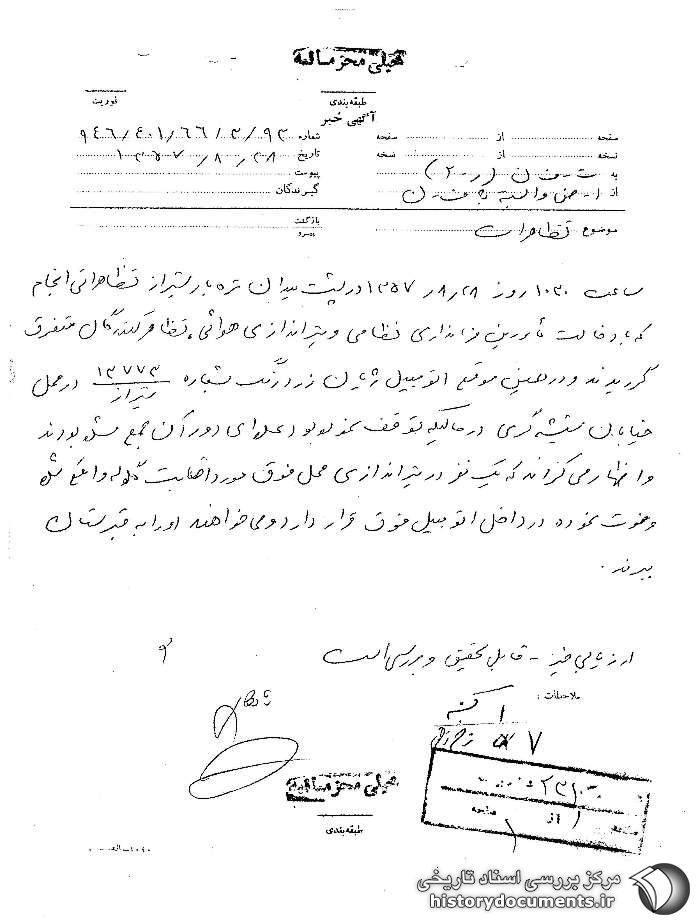 خیلی محرمانه
طبقه‌بندی
فوریت
آگهی خبر
صفحه از صفحه شماره ۹۴۶/۴۰۱/۶۶/۳/۹۳
نسخه از نسخه تاریخ ۱۳۵۷/۸/۲۸
به پیوست
از گیرندگان
موضوع تظاهرات بازگشت
ساعت ۱۰۳۰ روز ۱۳۵۷/۸/۲۸ در پشت میدان تره بار شیراز تظاهراتی انجام
که با دخالت مأمورین فرمانداری نظامی و تیراندازی هوائی، تظاهرکنندگان متفرق
گردیدند و در همین موقع اتومبیل ژیان زرد رنگ شماره ۱۳۷۷۳ شیراز در محل
خیابان شیشه گری در حالیکه توقف نموده بود عده‌ای دور آن جمع شده بودند
و اظهار می کردند که یک نفر در تیراندازی محل فوق مورد اصابت گلوله واقع شده
و فوت نموده در داخل اتومبیل فوق قرار دارد و می خواهند او را به قبرستان
ببرند.
ارزیابی خبر - قابل تحقیق و بررسی است
ملاحظات :
خیلی محرمانه
طبقه‌بندی
صفحه
از
صفحه
مرکز بررسی اسناد تاریخی
historydocuments.ir